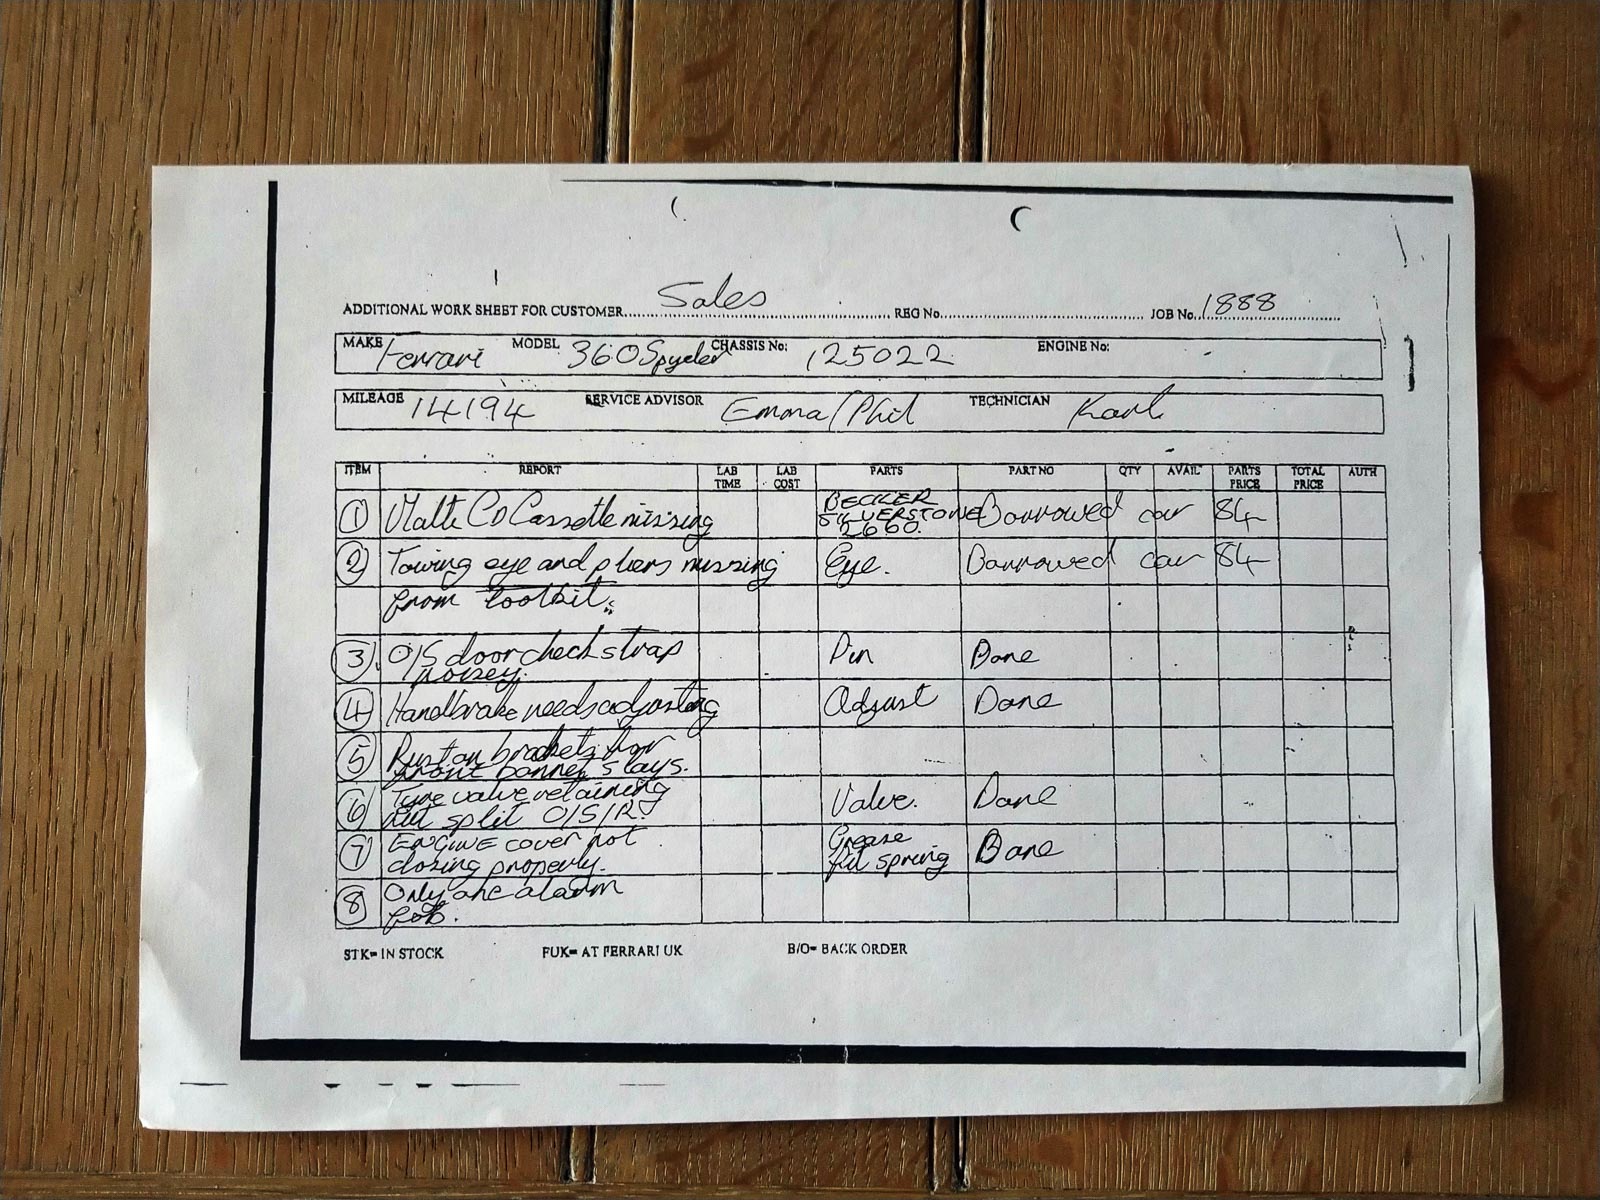 ADDITIONAL WORK SHEET FOR CUSTOMER Sales REG No. JOB No. 1888
MAKE Ferrari MODEL 360 Spyder CHASSIS No: 125022 ENGINE No:
MILEAGE 14194 SERVICE ADVISOR Emma/Phil TECHNICIAN Karl
ITEM REPORT LAB TIME LAB COST PARTS PART NO QTY AVAIL PARTS PRICE TOTAL PRICE AUTH
1 Multi CD Cassette missing BECKER SILVERSTONE 2660. Borrowed car 84
2 Towing eye and pliers missing Eye. Borrowed car 84
from toolkit.
3 O/S door check strap Pin Done
noisey.
4 Handbrake needs adjusting Adjust Done
5 Rust on brackets for
front bonnet stays.
6 Tyre valve retaining Valve. Done
nut split O/S/R.
7 ENGINE cover not Grease Done
closing properly. spring
8 Only one alarm
fob.
STK= IN STOCK FUK= AT FERRARI UK B/O= BACK ORDER